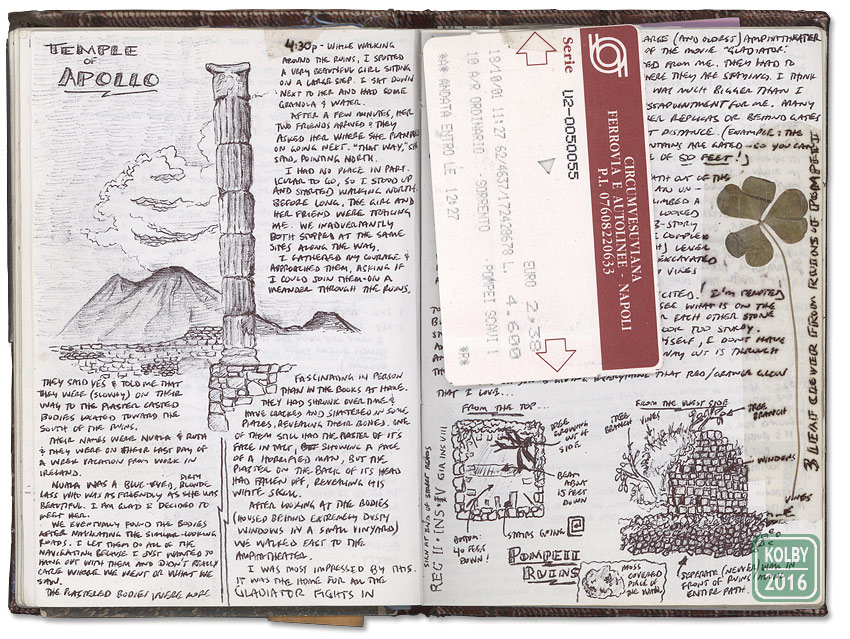 TEMPLE
OF
APOLLO
4:30p - WHILE WALKING
AROUND THE RUINS, I SPOTTED
A VERY BEAUTIFUL GIRL SITTING
ON A LARGE STEP. I SAT DOWN
NEXT TO HER AND HAD SOME
GRANOLA & WATER.
AFTER A FEW MINUTES, HER
TWO FRIENDS ARRIVED & THEY
ASKED HER WHERE SHE PLANNED
ON GOING NEXT. "THAT WAY," SHE
SAID, POINTING NORTH.
I HAD NO PLACE IN PART-
ICULAR TO GO, SO I STOOD UP
AND STARTED WALKING NORTH.
BEFORE LONG, THE GIRL AND
HER FRIEND WERE TRAILING
ME. WE INADVERTANTLY
BOTH STOPPED AT THE SAME
SITES ALONG THE WAY.
I GATHERED MY COURAGE &
APPROACHED THEM, ASKING IF
I COULD JOIN THEM ON A
MEANDER THROUGH THE RUINS.
THEY SAID YES & TOLD ME THAT
THEY WERE (SLOWLY) ON THEIR
WAY TO THE PLASTER CASTED
BODIES LOCATED TOWARD THE
SOUTH OF THE RUINS.
THEIR NAMES WERE NUALA & RUTH
& THEY WERE ON THEIR LAST DAY OF
A WEEK VACATION FROM WORK IN
IRELAND.
NUALA WAS A BLUE-EYED, DIRTY BLONDE
LASS WHO WAS AS FRIENDLY AS SHE WAS
BEAUTIFUL. I AM GLAD I DECIDED TO
MEET HER.
WE EVENTUALLY FOUND THE BODIES
AFTER NAVIGATING THE SIMILAR-LOOKING
ROADS. I LET THEM DO ALL OF THE
NAVIGATING BECAUSE I JUST WANTED TO
HANG OUT WITH THEM AND DIDN'T REALLY
CARE WHERE WE WENT OR WHAT WE
SAW.
THE PLASTERED BODIES WERE MORE
FASCINATING IN PERSON
THAN IN THE BOOKS AT HOME.
THEY HAD SHRUNK OVER TIME &
HAVE CRACKED AND SHATTERED IN SOME
PLACES, REVEALING THEIR BONES. ONE
OF THEM STILL HAD THE PLASTER OF ITS
FACE IN TACT, BUT SHOWING A FACE
OF A HORRIFIED MAN, BUT THE
PLASTER ON THE BACK OF ITS HEAD
HAD FALLEN OFF, REVEALING HIS
WHITE SKULL.
AFTER LOOKING AT THE BODIES
(HOUSED BEHIND EXTREMELY DUSTY
WINDOWS IN A SMALL VINEYARD)
WE WALKED EAST TO THE
AMPHITHEATER.
I WAS MOST IMPRESSED BY THIS.
IT WAS THE HOME FOR ALL THE
GLADIATOR FIGHTS IN
Serie U2-0050055
CIRCUMVESUVIANA
FERROVIA E AUTOLINEE - NAPOLI
P.I. 07608220633
18/10/01 11:27 62/4637/172/20678
10 A/R ORDINARIO SORRENTO -POMPEI SCAVI 1
*A* ANDATA ENTRO LE 12:27
EURO 2.38
L. 4.600
*A*
LARGE (AND OLDEST) AMPHITHEATER
OF THE MOVIE "GLADIATOR."
FROM ME. THEY HAD TO
WHERE THEY ARE STAYING. I THINK
WAS MUCH BIGGER THAN I
DISSAPOINTMENT FOR ME. MANY
REPLICAS OR BEHIND GATES
DISTANCE. (EXAMPLE: THE
ARE GATED - SO YOU CAN
OF 50 FEET!)
PATH OUT OF THE
UN-
CLIMBED A
LOOKED
-STORY
LEVEL
EXCAVATED
VINES
I'M TEMPTED
SEE WHAT IS ON THE
EACH OTHER STONE
LOOK TOO STURDY.
MYSELF, I DON'T HAVE
WAY OUT IS THROUGH
EVERYTHING THAT RED/ORANGE GLOW
THAT I LOVE...
FROM THE TOP...
TREE
GROWING
OUT OF
SIDE
BEAM
ABOUT
15 FEET
DOWN
BOTTOM
40 FEET
DOWN!
STAIRS GOING
SIGN AT END OF STREET READS:
REG II · INS · IV GIA INS VIII
POMPEII
RUINS
FROM THE WEST SIDE
TREE
BRANCH
VINES
TREE
BRANCH
WINDOWS
VINES
MOSS
COVERED
PIECE OF
THE WALL
SEPERATE (NEWER) WALL IN
FRONT OF RUINS ALONG
ENTIRE PATH.
3 LEAF CLOVER FROM RUINS OF POMPEII
KOLBY
2016